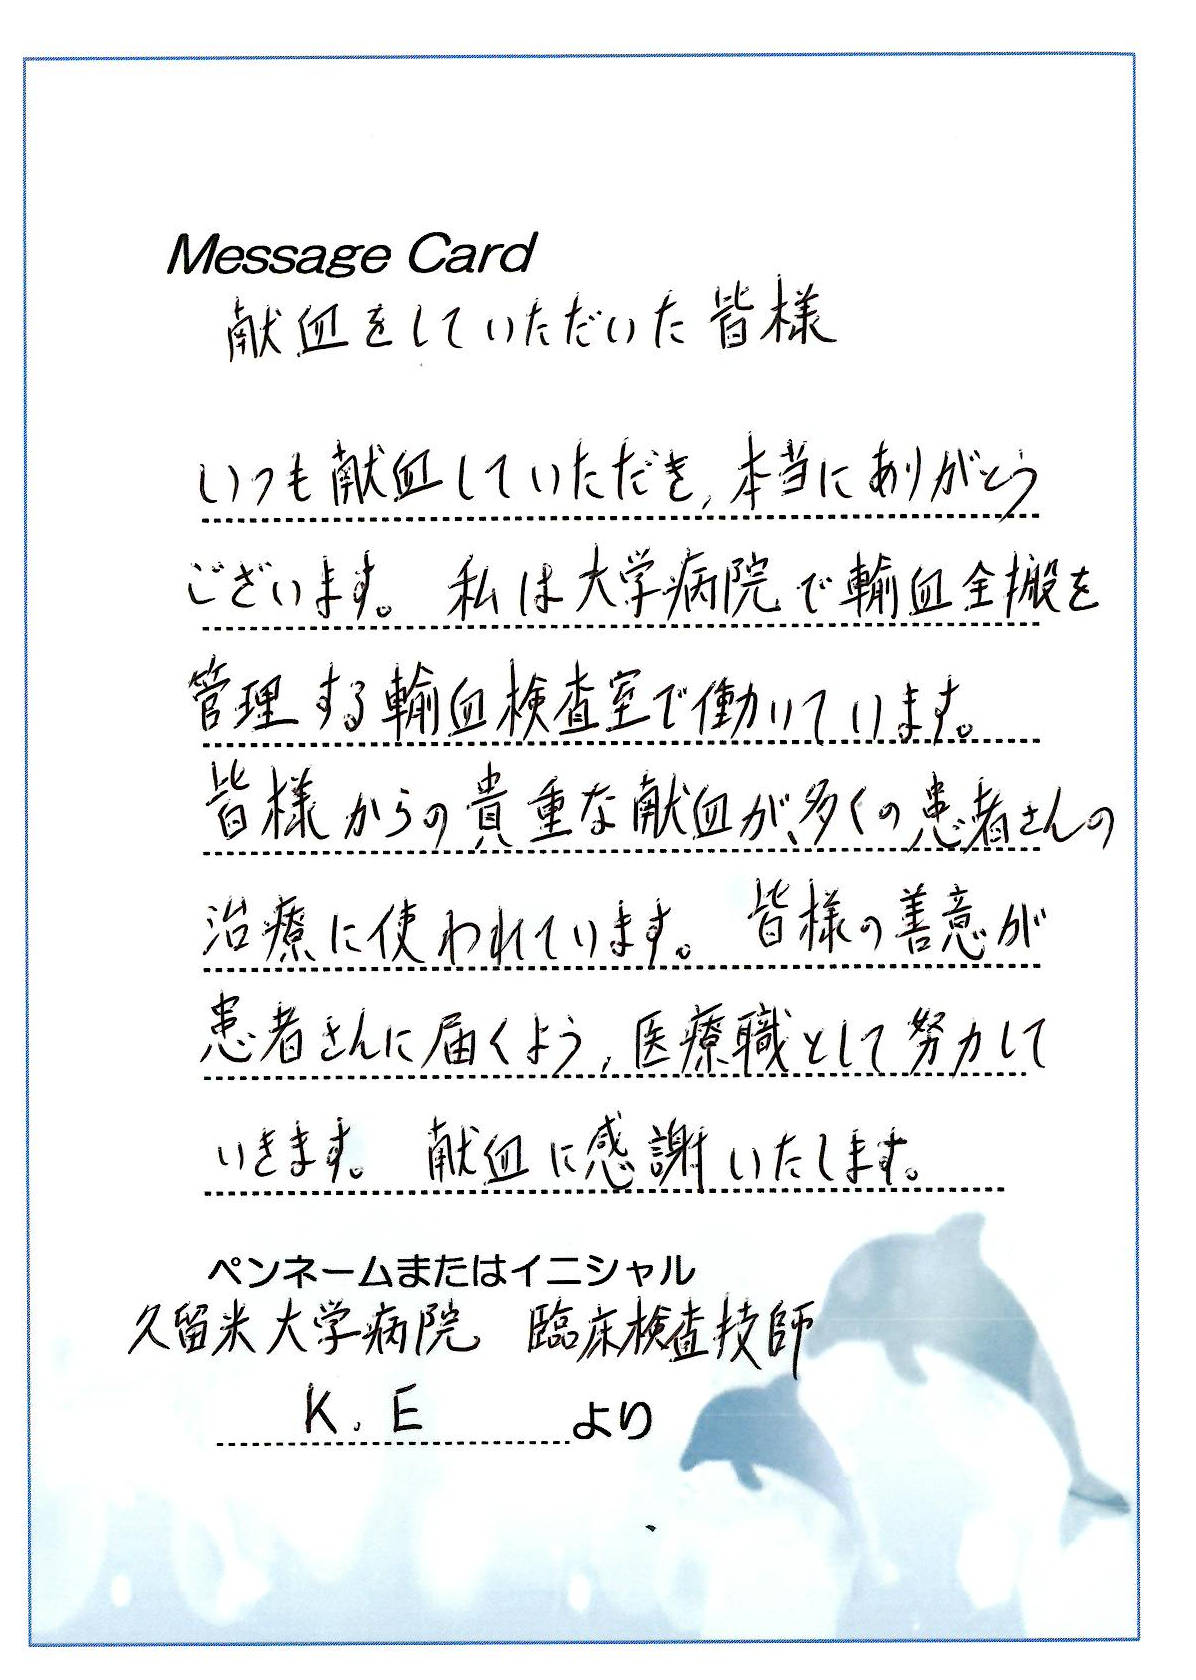 Message Card
献血をしていただいた皆様
いつも献血していただき、本当にありがとう
ございます。 私は大学病院で輸血全搬を
管理する輸血検査室で働いています。
皆様からの貴重な献血が、多くの患者さんの
治療に使われています。 皆様の善意が
患者さんに届くよう、医療職として努力して
いきます。 献血に感謝いたします。
ペンネームまたはイニシャル
久留米大学病院 臨床検査技師
K.E より